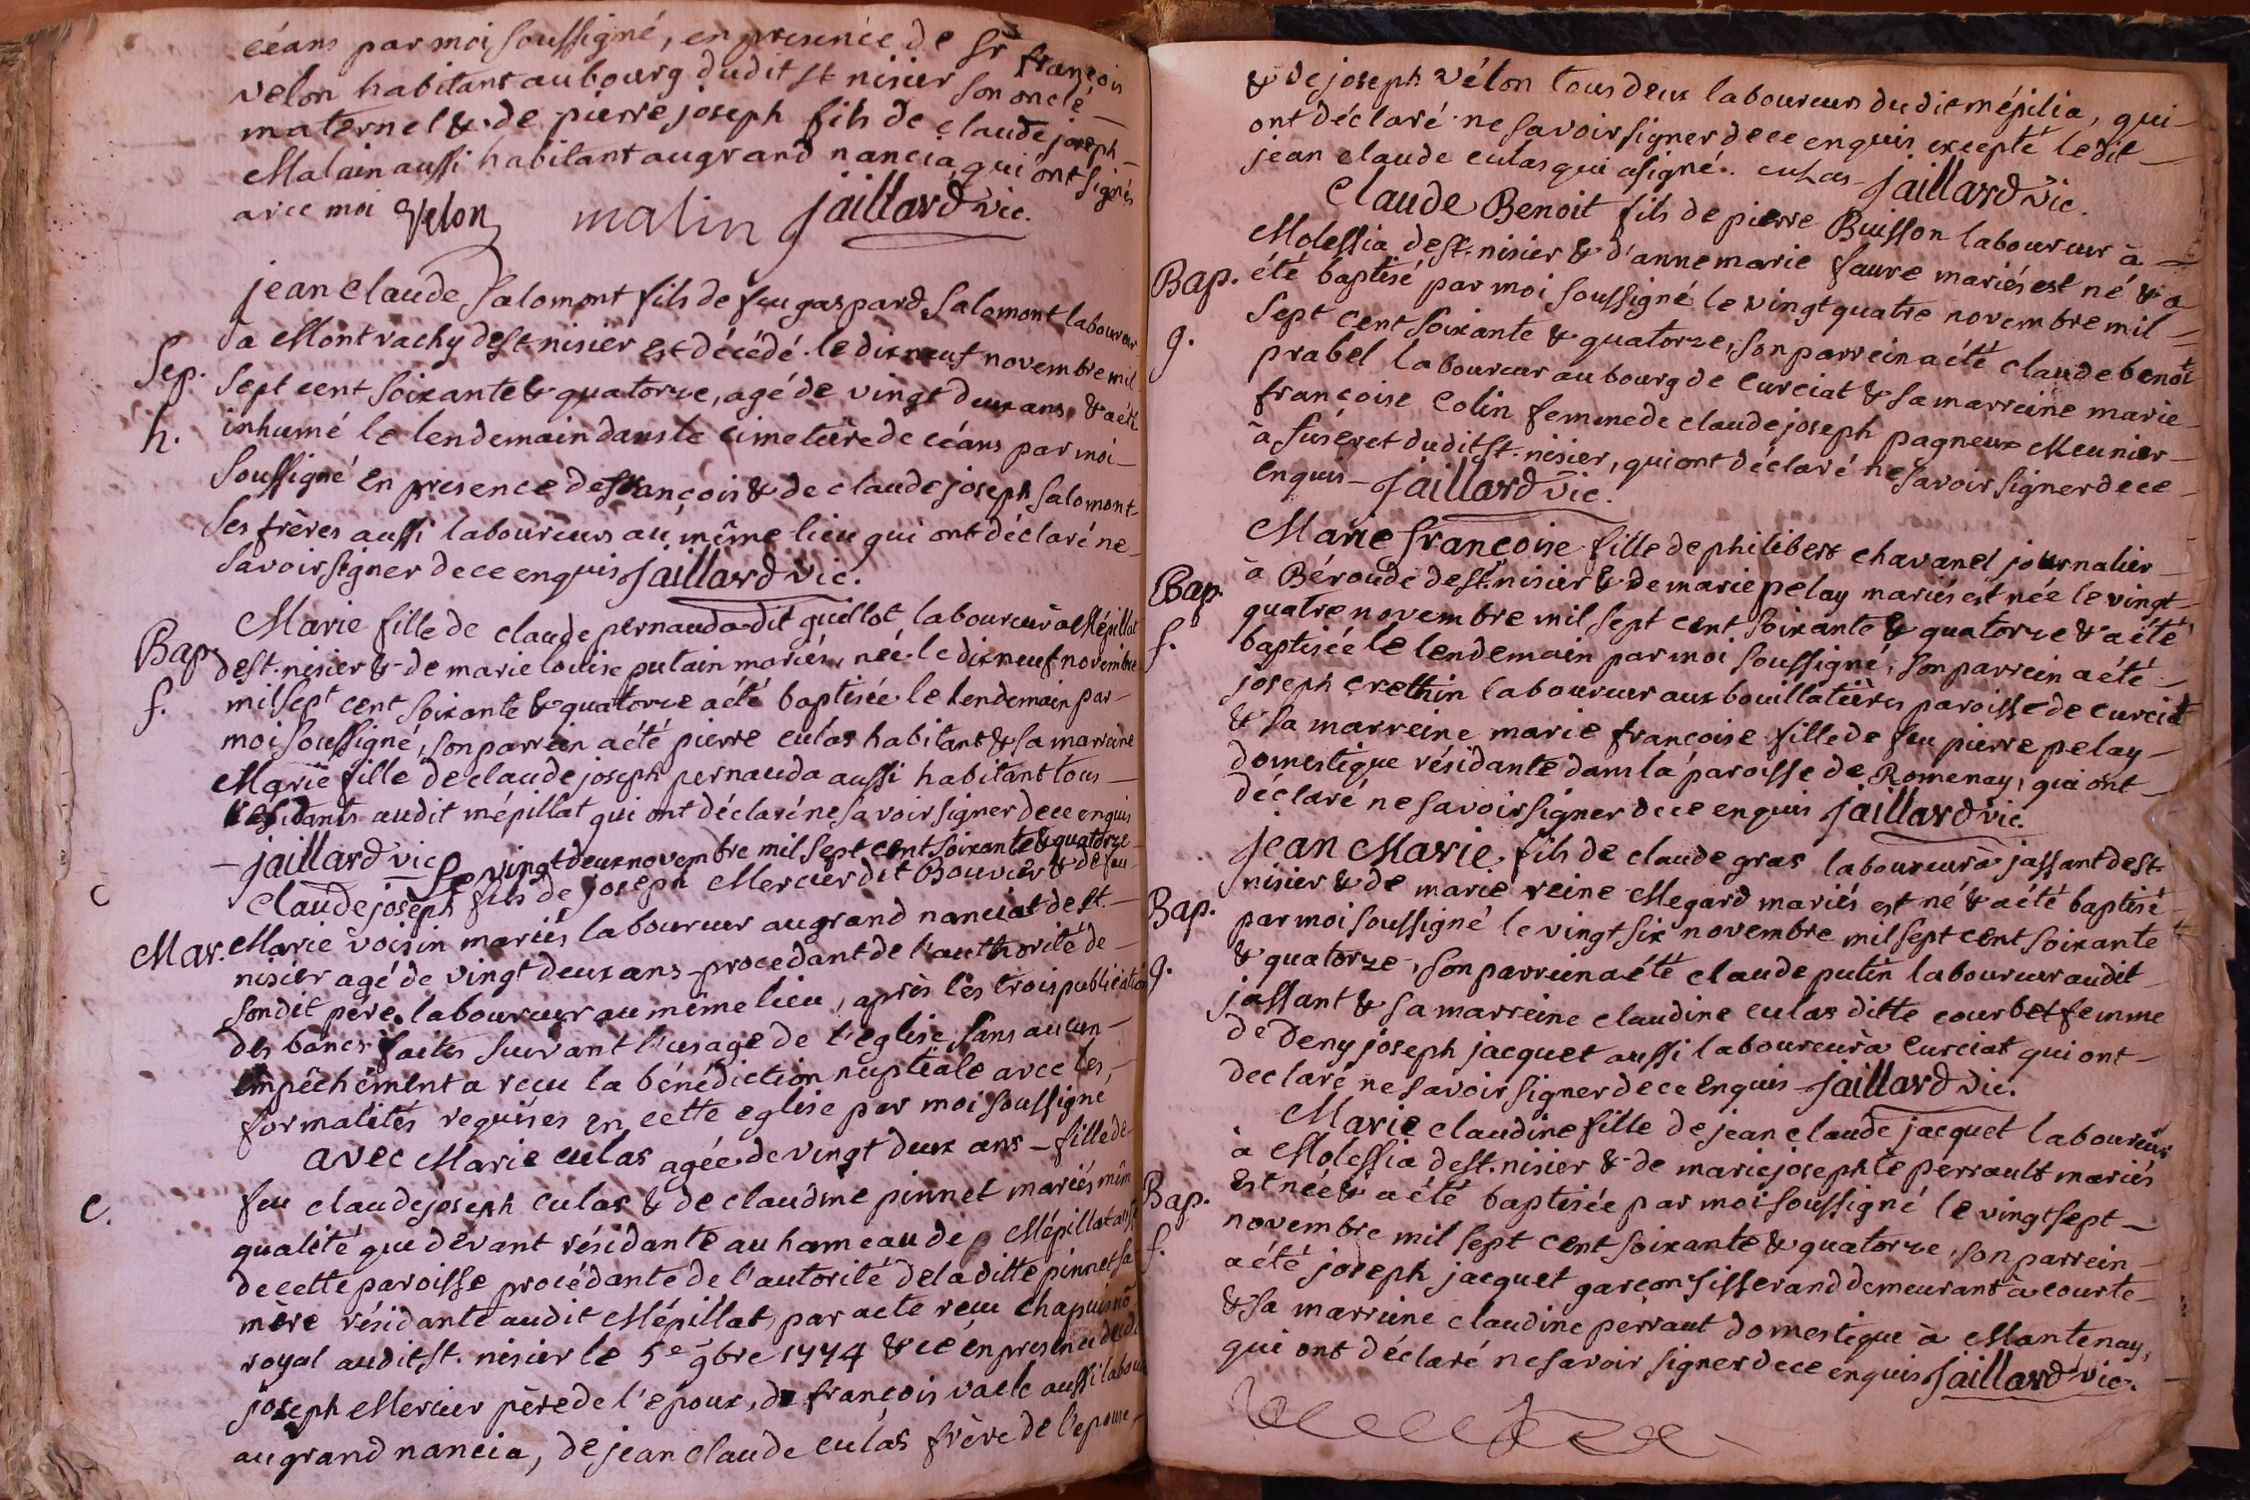 céans par moi soussigné, en presence de Sr françois
velon habitant au bourg dudit st nisier son oncle
maternel & de pierre joseph fils de claude joseph
Malain aussi habitant au grand nancia qui ont signés
avec moi Velon malin jaillard vic.
jean claude Salomont fils de feu gaspard Salomont laboureur
à Montvachy de st nisier est décédé le dix neuf novembre mil
Sep. sept cent soixante & quatorze, agé de vingt deux ans & a été
h. inhumé le lendemain dans le cimetière de céans par moi
soussigné en presence de françois & de claude joseph Salomont
ses frères aussi laboureurs au même lieu qui ont déclaré ne
savoir signer de ce enquis jaillard vic.
Marie fille de claude pernauda dit guillot laboureur à Mépillat
Bap. de st. nisier & de marie louise putain mariés, née le dix neuf novembre
f. mil sept cent soixante & quatorze a été baptisée le lendemain par
moi soussigné, son parrein a été pierre culas habitant & sa marreine
Marie fille de claude joseph pernauda aussi habitant tous
résidants audit mépillat qui ont déclaré ne savoir signer de ce enquis
jaillard vic Le vingt deux novembre mil sept cent soixante & quatorze
c claude joseph fils de joseph Mercier dit Bouvier & de feu
Mar. Marie voisin mariés laboureur au grand nanciat de st.
nisier agé de vingt deux ans procedant de l'authorité de
sondit père laboureur au même lieu, après les trois publications
des bancs faites suivant l'usage de l'eglise sans aucun
empêchement a recu la bénédiction nuptiale avec les
formalités requises en cette eglise par moi soussigné
avec Marie culas agée de vingt deux ans fille de
c. feu claude joseph culas & de claudine pinnet mariés même
qualité que devant résidante au hameau de Mépillat aussi
de cette paroisse procédante de l'autorité de la ditte pinnet sa
mère résidante audit Mépillat, par acte recu chapuis nõ
royal audit st. nisier le 5e 9bre 1774 & ce en presence dudt
joseph Mercier père de l'epoux, de françois vaele aussi labour
au grand nancia, de jean claude culas frère de l'epouse
& de joseph vélon tous deux laboureurs dudit mépilia, qui
ont déclaré ne savoir signer de ce enquis excepté ledit
jean claude culas qui a signé. culas jaillard vic.
Claude Benoit fils de pierre Buisson laboureur à
Molessia de st. nisier & d'anne marie faure mariés est né & a
Bap. été baptisé par moi soussigné le vingt quatre novembre mil
g. sept cent soixante & quatorze, son parrein a été claude benoit
prabel laboureur au bourg de curciat & sa marreine marie
françoise Colin femme de claude joseph pagneux Meunier
à fuseret dudit st. nisier, qui ont déclaré ne savoir signer de ce
enquis jaillard vic.
Marie françoise fille de philibert chavanel journalier
à Béroude de st. nisier & de marie pelay mariés est née le vingt
Bap. quatre novembre mil sept cent soixante & quatorze & a été
f. baptisée le lendemain par moi soussigné, son parrein a été
joseph crethin laboureur aux bouillatières paroisse de curciat
& sa marreine marie françoise fille de feu pierre pelay
domestique résidante dans la paroisse de Romenay, qui ont
déclaré ne savoir signer de ce enquis jaillard vic.
jean Marie fils de claude gras laboureur à jassant de st.
nisier & de marie reine Megard mariés est né & a été baptisé
Bap. par moi soussigné le vingt six novembre mil sept cent soixante
g. & quatorze, son parrein a été claude putin laboureur audit
jassant & sa marreine claudine culas ditte courbet femme
de Deny joseph jacquet aussi laboureur à curciat qui ont
declaré ne savoir signer de ce enquis jaillard vic.
Marie claudine fille de jean claude jacquet laboureur
à Molessia de st. nisier & de marie josephte perrault mariés
Bap. est née & a été baptisée par moi soussigné le vingt sept
f. novembre mil sept cent soixante & quatorze, son parrein
a été joseph jacquet garcon tisserand demeurant à courte
& sa marreine claudine perraut domestique à Mantenay,
qui ont déclaré ne savoir signer de ce enquis jaillard vic.